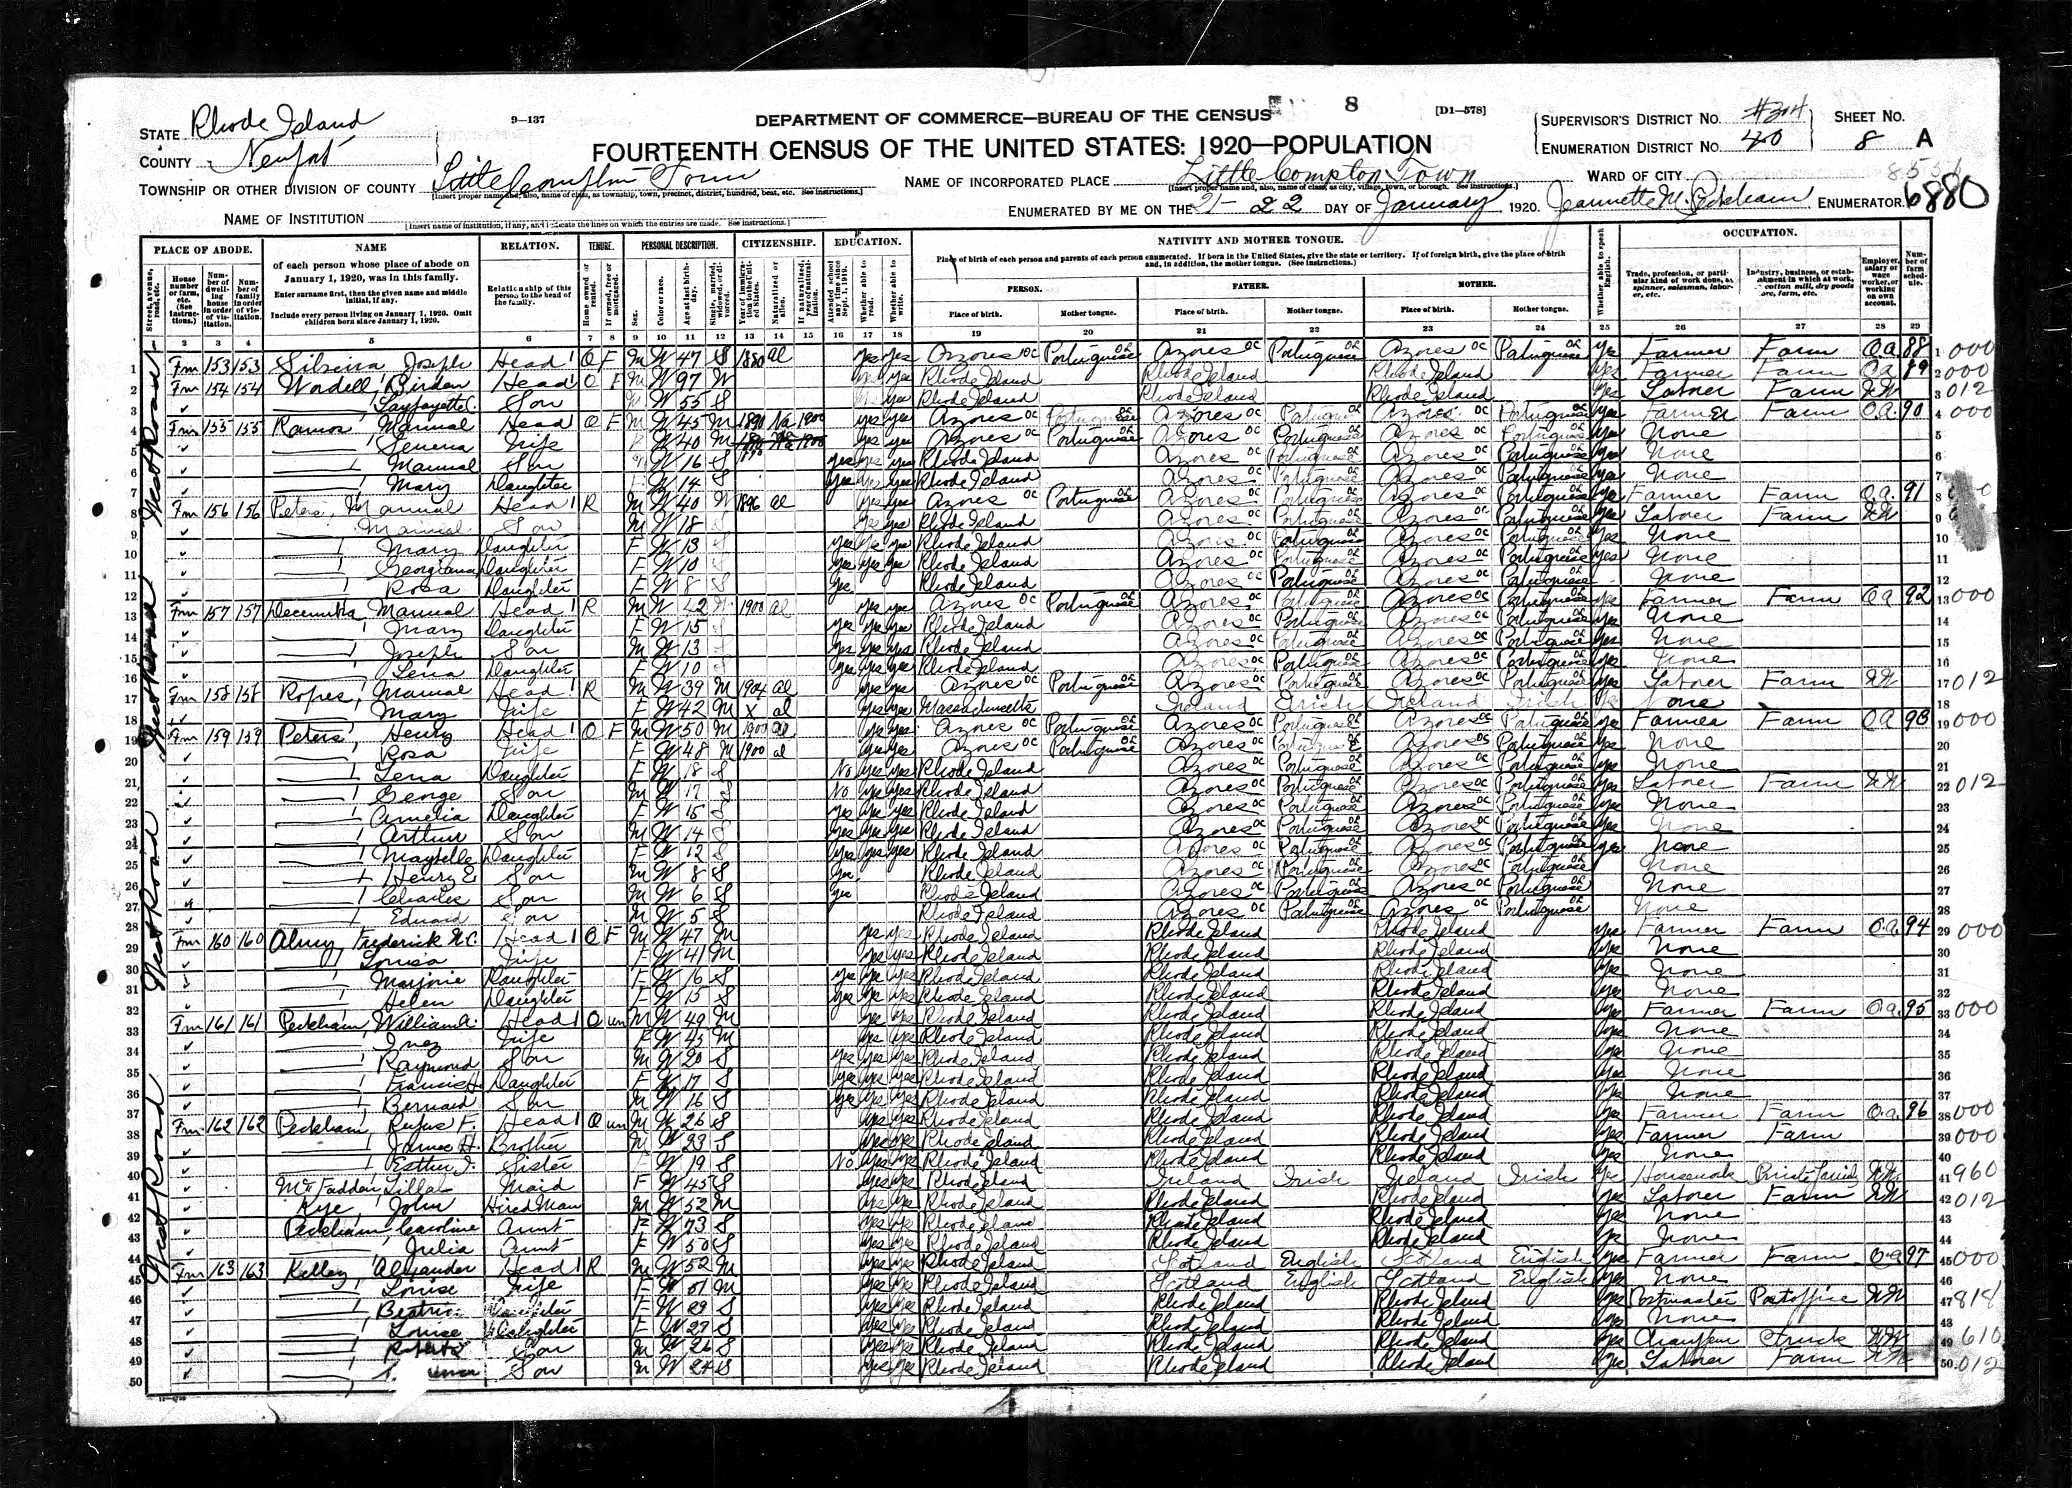 8
[D1-578]
STATE Rhode Island
9-137
DEPARTMENT OF COMMERCE—BUREAU OF THE CENSUS
SUPERVISOR'S DISTRICT NO.
SHEET NO.
COUNTY Newport
FOURTEENTH CENSUS OF THE UNITED STATES: 1920—POPULATION
ENUMERATION DISTRICT NO. 40
8 A
TOWNSHIP OR OTHER DIVISION OF COUNTY Little Compton Town
NAME OF INCORPORATED PLACE Little Compton Town
WARD OF CITY
6880
NAME OF INSTITUTION
ENUMERATED BY ME ON THE 21-22 DAY OF January, 1920. Jeannette M. Peckham, ENUMERATOR.
PLACE OF ABODE. NAME RELATION. TENURE. PERSONAL DESCRIPTION. CITIZENSHIP. EDUCATION. NATIVITY AND MOTHER TONGUE. OCCUPATION.
of each person whose place of abode on January 1, 1920, was in this family.
Enter surname first, then the given name and middle initial, if any.
Include every person living on January 1, 1920. Omit children born since January 1, 1920.
Relationship of this person to the head of the family.
Place of birth of each person and parents of each person enumerated. If born in the United States, give the state or territory. If of foreign birth, give the place of birth and, in addition, the mother tongue. (See instructions.)
PERSON. FATHER. MOTHER.
Place of birth. Mother tongue. Place of birth. Mother tongue. Place of birth. Mother tongue.
2 3 4 5 6 7 8 9 10 11 12 13 14 15 16 17 18 19 20 21 22 23 24 25 26 27 28 29
West Road
1 Fm 153 153 Silveira Joseph Head O F M W 47 S 1880 al yes yes Azores Portuguese Azores Portuguese Azores Portuguese yes Farmer Farm O.a. 88 000
2 Fm 154 154 Head O F M W 97 W yes Rhode Island Rhode Island Rhode Island yes Farmer Farm Oa 89 000
3 Lafayette C. Son M W 55 S yes Rhode Island Rhode Island Rhode Island yes Laborer Farm W 012
4 Fm 155 155 Ramos Manual Head O F M W 45 M 1890 Na 1900 yes yes Azores Portuguese Azores Portuguese Azores Portuguese yes Farmer Farm O.a. 90 000
5 Wife F W 40 M yes yes Azores Portuguese Azores Portuguese Azores Portuguese yes None
6 Manual Son M W 16 S yes yes yes Rhode Island Azores Portuguese Azores Portuguese yes None
7 Mary Daughter F W 14 S yes yes yes Rhode Island Azores Portuguese Azores Portuguese yes None
8 Fm 156 156 Peters, Manual Head R M W 40 W 1896 al yes yes Azores Portuguese Azores Portuguese Azores Portuguese yes Farmer Farm O.a. 91
9 Manual Son M W 18 S yes yes Rhode Island Azores Portuguese Azores Portuguese yes Laborer Farm W
10 Mary Daughter F W 13 S yes yes yes Rhode Island Azores Portuguese Azores Portuguese yes None
11 Georgiana Daughter F W 10 S yes yes yes Rhode Island Azores Portuguese Azores Portuguese yes None
12 Rosa Daughter F W 8 S yes Rhode Island Azores Portuguese Azores Portuguese None
13 Fm 157 157 Manual Head R M W 42 W 1900 al yes yes Azores Portuguese Azores Portuguese Azores Portuguese yes Farmer Farm Oa 92 000
14 Mary Daughter F W 15 S yes yes yes Rhode Island Azores Portuguese Azores Portuguese yes None
15 Joseph Son M W 13 S yes yes yes Rhode Island Azores Portuguese Azores Portuguese yes None
16 Lena Daughter F W 10 S yes yes yes Rhode Island Azores Portuguese Azores Portuguese yes None
17 Fm 158 158 Manual Head R M W 39 M 1904 al yes yes Azores Portuguese Azores Portuguese Azores Portuguese yes Laborer Farm W 012
18 Mary Wife F W 42 M X al yes yes Massachusetts Ireland Irish Ireland Irish yes None
19 Fm 159 159 Peters, Henry Head O F M W 50 M 1900 al yes yes Azores Portuguese Azores Portuguese Azores Portuguese yes Farmer Farm Oa 93 000
20 Rosa Wife F W 48 M 1900 al yes yes Azores Portuguese Azores Portuguese Azores Portuguese yes None
21 Lena Daughter F W 18 S No yes yes Rhode Island Azores Portuguese Azores Portuguese yes None
22 George Son M W 17 S No yes yes Rhode Island Azores Portuguese Azores Portuguese yes Laborer Farm W 012
23 Amelia Daughter F W 15 S yes yes yes Rhode Island Azores Portuguese Azores Portuguese yes None
24 Arthur Son M W 14 S yes yes yes Rhode Island Azores Portuguese Azores Portuguese yes None
25 Maybelle Daughter F W 12 S yes yes yes Rhode Island Azores Portuguese Azores Portuguese yes None
26 Henry E Son M W 8 S yes Rhode Island Azores Portuguese Azores Portuguese None
27 Charles Son M W 6 S yes Rhode Island Azores Portuguese Azores Portuguese None
28 Edward Son M W 5 S Rhode Island Azores Portuguese Azores Portuguese None
29 Fm 160 160 Almy, Frederick Head O F M W 47 M yes yes Rhode Island Rhode Island Rhode Island yes Farmer Farm O.a. 94 000
30 Louisa Wife F W 41 M yes yes Rhode Island Rhode Island Rhode Island yes None
31 Marjorie Daughter F W 16 S yes yes yes Rhode Island Rhode Island Rhode Island yes None
32 Helen Daughter F W 15 S yes yes yes Rhode Island Rhode Island Rhode Island yes None
33 Fm 161 161 Peckham, William A. Head O un M W 49 M yes yes Rhode Island Rhode Island Rhode Island yes Farmer Farm O.a. 95 000
34 Inez Wife F W 45 M yes yes Rhode Island Rhode Island Rhode Island yes None
35 Raymond Son M W 20 S yes yes yes Rhode Island Rhode Island Rhode Island yes None
36 Francis H. Daughter F W 17 S yes yes yes Rhode Island Rhode Island Rhode Island yes None
37 Bernard Son M W 16 S yes yes yes Rhode Island Rhode Island Rhode Island yes None
38 Fm 162 162 Peckham, Rufus F. Head O un M W 26 S yes yes Rhode Island Rhode Island Rhode Island yes Farmer Farm O.a. 96 000
39 James H. Brother M W 23 S yes yes Rhode Island Rhode Island Rhode Island yes Farmer Farm 000
40 Esther Sister F W 19 S No yes yes Rhode Island Rhode Island Rhode Island yes None
41 McFadden, Lilla Maid F W 45 S yes yes Rhode Island Ireland Irish Ireland Irish yes Housework Private Family W 960
42 Rye, John Hired Man M W 52 M yes yes Rhode Island Rhode Island Rhode Island yes Laborer Farm W 012
43 Peckham, Caroline Aunt F W 73 S yes yes Rhode Island Rhode Island Rhode Island yes None
44 Julia Aunt F W 50 S yes yes Rhode Island Rhode Island Rhode Island yes None
45 Fm 163 163 Kelley, Alexander Head R M W 52 M yes yes Rhode Island Scotland English Scotland English yes Farmer Farm O.a. 97 000
46 Louise Wife F W 51 M yes yes Rhode Island Scotland English Scotland English yes None
47 Beatrice Daughter F W 29 S yes yes Rhode Island Rhode Island Rhode Island yes Postmaster Postoffice W 818
48 Louise Daughter F W 27 S yes yes Rhode Island Rhode Island Rhode Island yes None
49 Son M W 26 S yes yes Rhode Island Rhode Island Rhode Island yes Truck W 610
50 Son M W 24 S yes yes Rhode Island Rhode Island Rhode Island yes Laborer Farm W 012